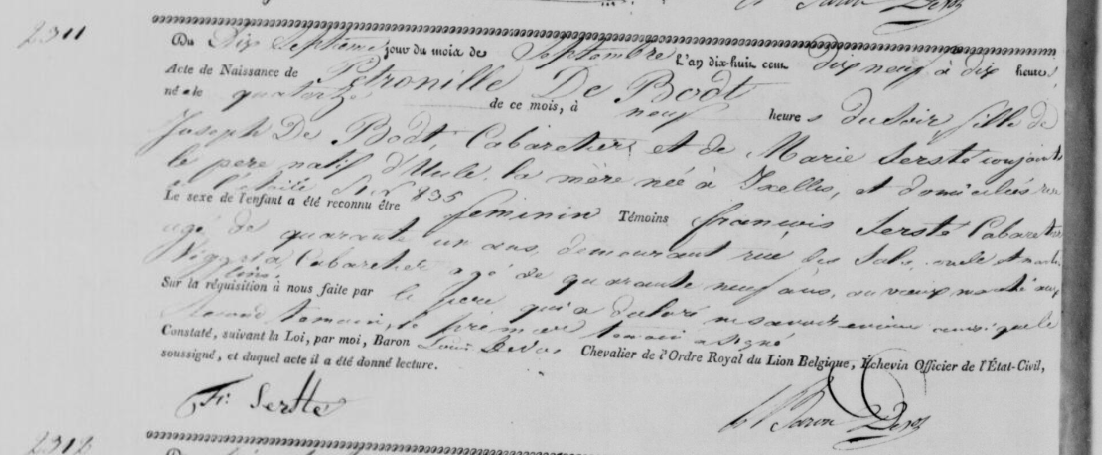 2311
Du Dix Septième jour du mois de Septembre l'an dix-huit cent dix neuf à dix heures
Acte de Naissance de Petronille De Bodt
née le quatorze de ce mois, à neuf heures du soir fille de
Joseph De Bodt, Cabaretier et de Marie Serste conjoints
le pere natif d'Ucle, la mère née à Ixelles, et domiciliés rue
Le sexe de l'enfant a été reconnu être feminin Témoins françois Serste Cabaretier
agé de quarante un ans, demeurant rue des Sols, oncle et
Cabaretier agé de quarante neuf ans, au vieux marché aux
Sur la réquisition à nous faite par le pere qui a declaré ne savoir ecrire ainsi que le
Second temoin, le premier temoin a signé
Constaté, suivant la Loi, par moi, Baron Louis Devos Chevalier de l'Ordre Royal du Lion Belgique, Echevin Officier de l'État-Civil,
soussigné, et duquel acte il a été donné lecture.
Fr. Serste
Baron Devos
2312